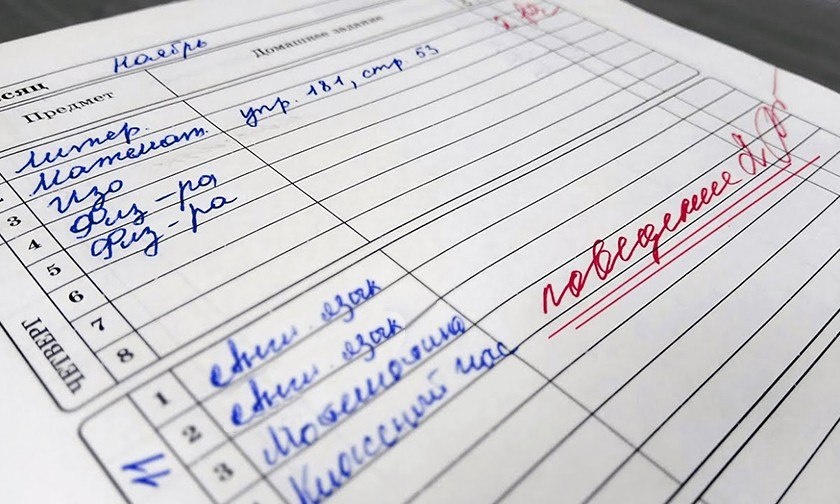 сяц ноябрь
Предмет Домашнее задание
Литер.
Математ. упр. 181, стр 53
3 Изо
4 Физ-ра
5 Физ-ра
6
7
8
ЧЕТВЕРГ
поведение 2
1 Англ. язык
2 Англ. язык
3 Математика
Классный час
11